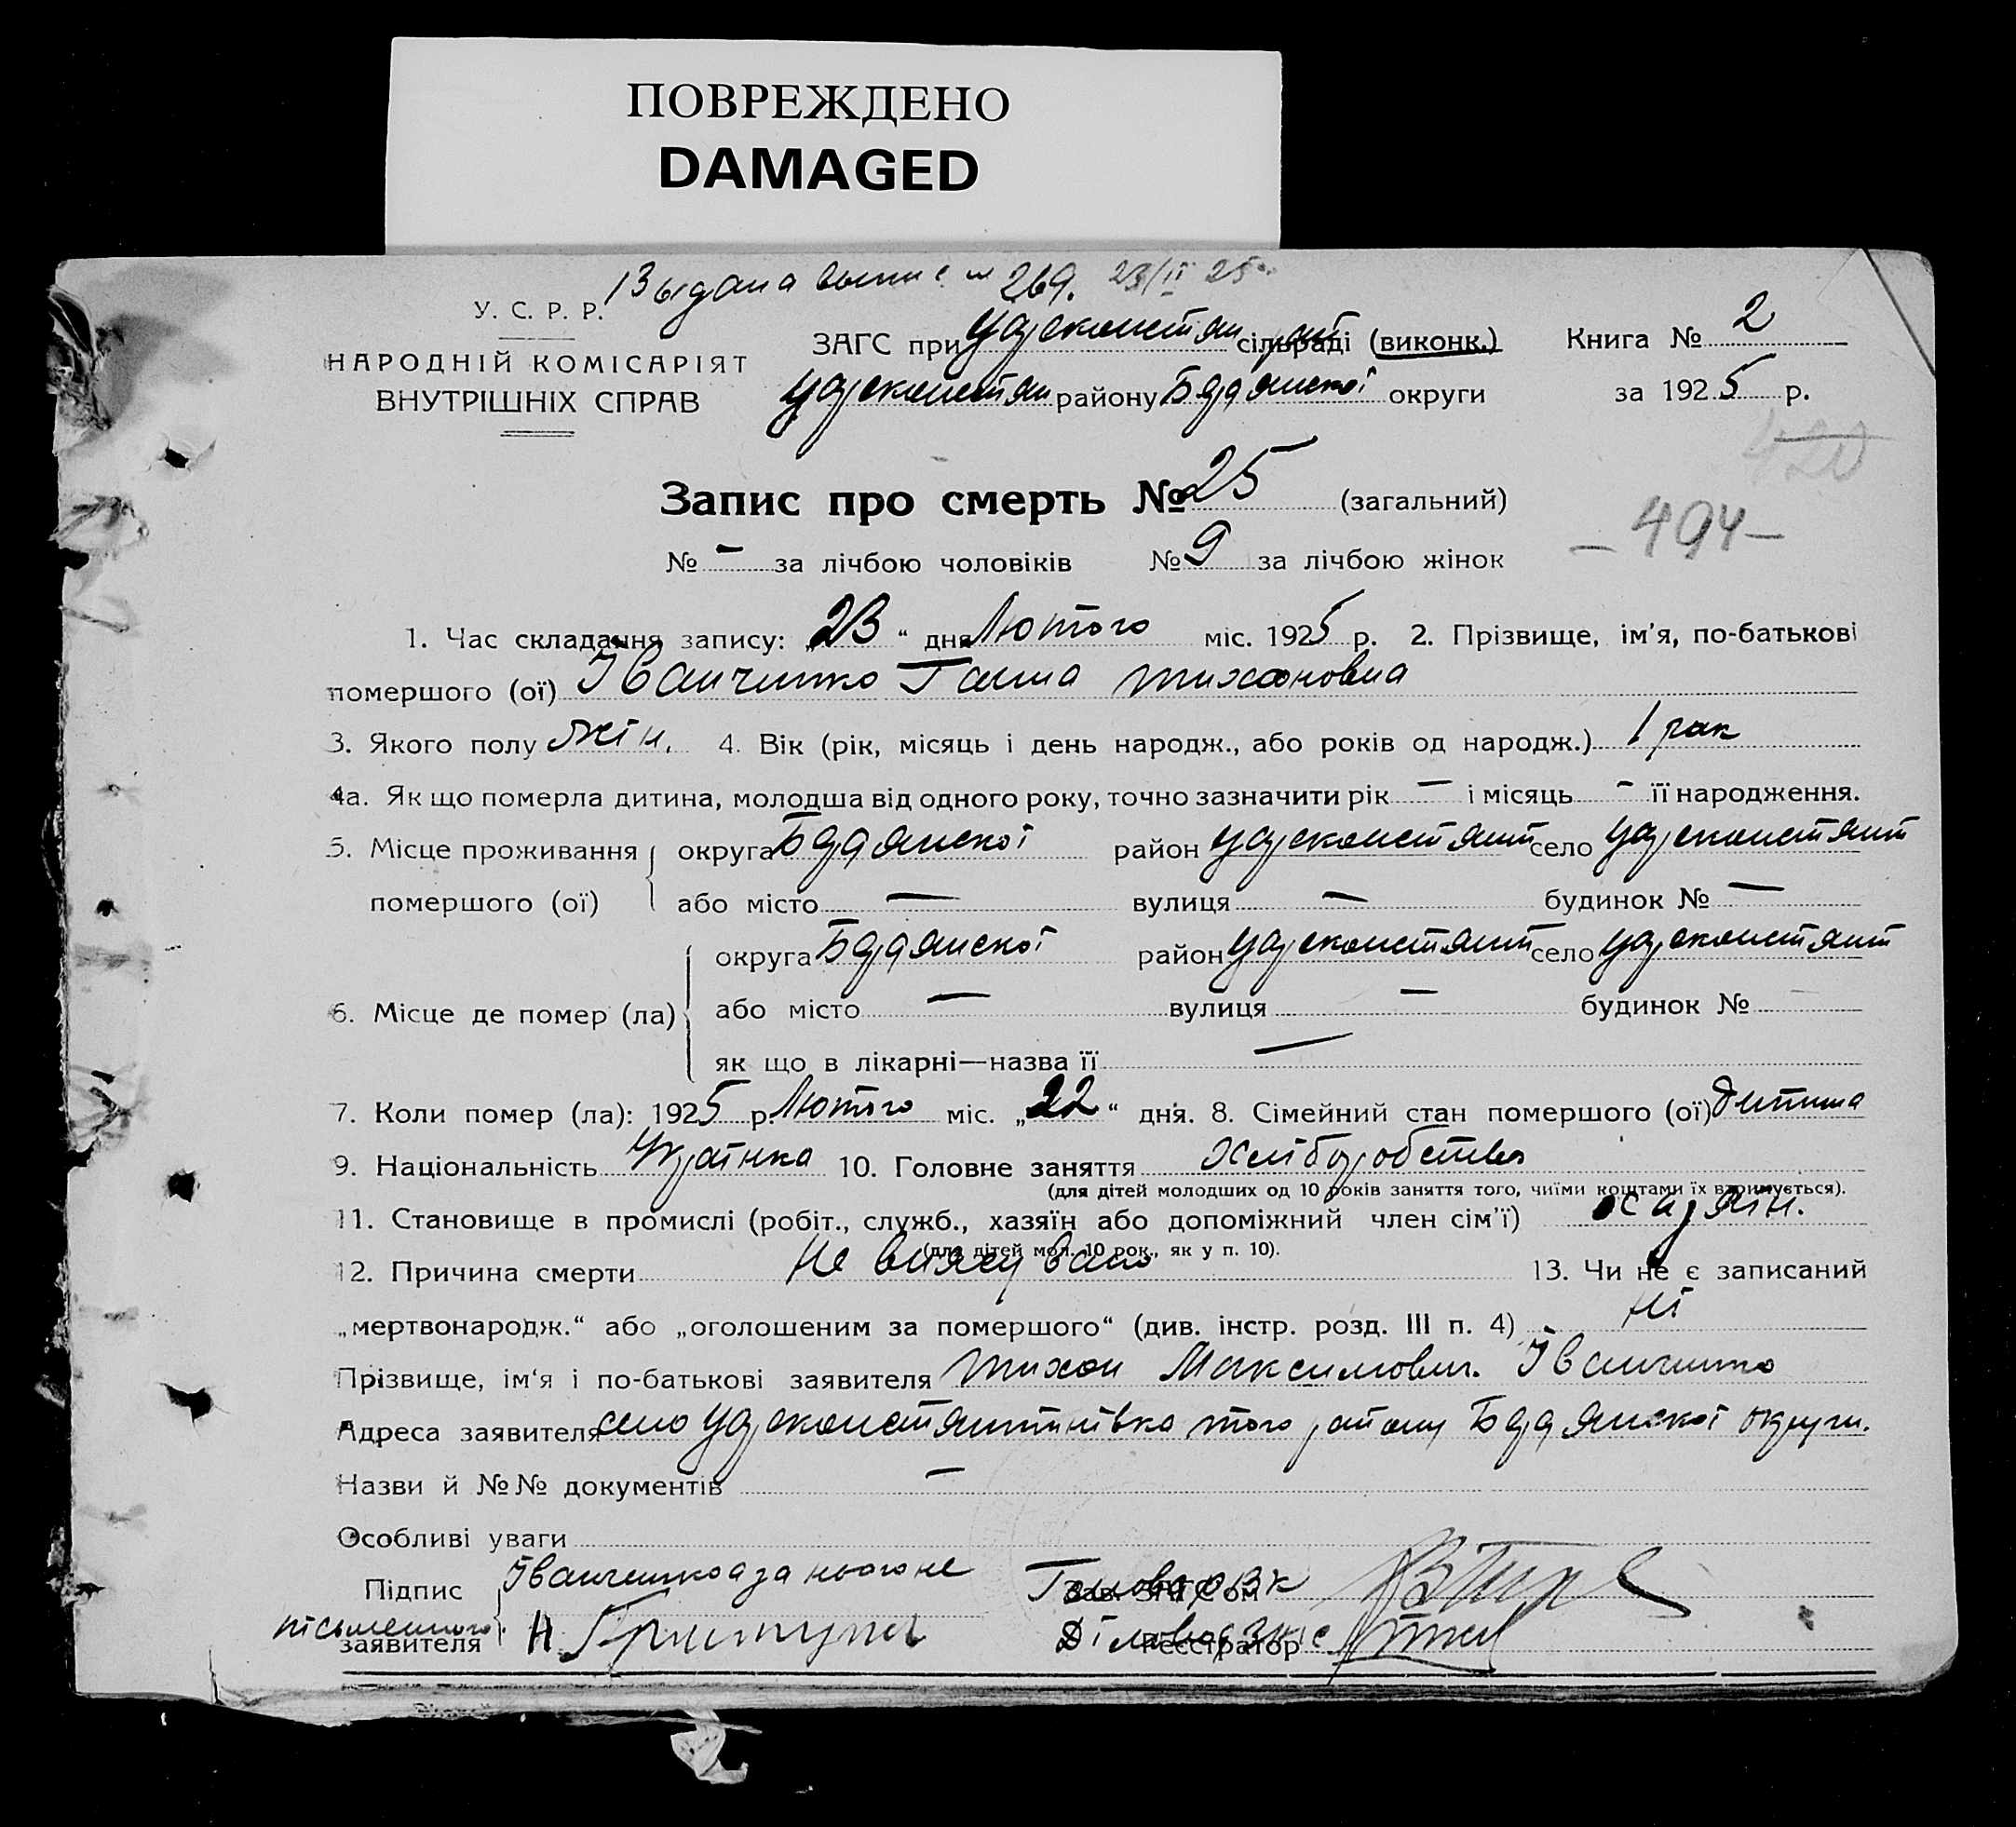 ПОВРЕЖДЕНО
DAMAGED
Выдана выпис № 269. 23/II 25
У. С. Р. Р.
НАРОДНІЙ КОМІСАРІЯТ
ВНУТРІШНІХ СПРАВ
ЗАГС при Царсконстян сільраді (виконк.)
Царсконстян району Бердянскоі округи
Книга № 2
за 1925 р.
420
Запис про смерть № 25 (загальний)
– 494 –
№ – за лічбою чоловіків № 9 за лічбою жінок
1. Час складання запису: „23“ дня Лютого міс. 1925 р. 2. Прізвище, ім'я, по-батькові
помершого (ої) Іванченко Ганна Тихоновна
3. Якого полу жін. 4. Вік (рік, місяць і день народж., або років од народж.) 1 рак
4а. Як що померла дитина, молодша від одного року, точно зазначити рік – і місяць – її народження.
5. Місце проживання помершого (ої) округа Бердянскоі район Царсконстянт село Царсконстянт
або місто – вулиця – будинок № –
6. Місце де помер (ла) округа Бердянскоі район Царсконстянт село Царсконстянт
або місто – вулиця – будинок № –
як що в лікарні—назва її –
7. Коли помер (ла): 1925 р. Лютого міс. „22“ дня. 8. Сімейний стан помершого (ої) дитина
9. Національність Українка 10. Головне заняття Хліборобство
(для дітей молодших од 10 років заняття того, чиїми коштами їх втримується).
11. Становище в промислі (робіт., служб., хазяїн або допоміжний член сім'ї) хазяїн.
(для дітей мол. 10 рок., як у п. 10).
12. Причина смерти Не виясувано 13. Чи не є записаний
„мертвонародж.“ або „оголошеним за помершого“ (див. інстр. розд. III п. 4) ні
Прізвище, ім'я і по-батькові заявителя Тихон Максимович. Іванченко
Адреса заявителя село Царсконстянтинівка того району Бердянскоі округи.
Назви й №№ документів –
Особливі уваги
Підпис Іванченко а за нього не
письменного
заявителя Н.
Голова РВК
Зав. ЗАГС'ом
Діловод ЗАГС
Реєстратор